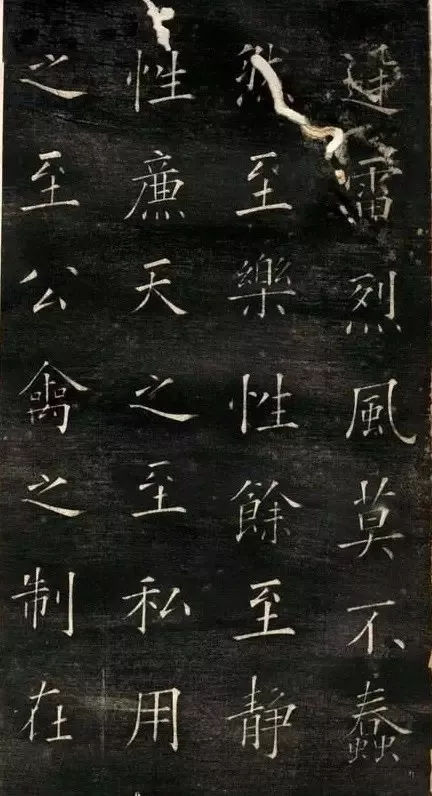 迅雷烈風莫不蠢
然至樂性餘至靜
性廉天之至私用
之至公禽之制在